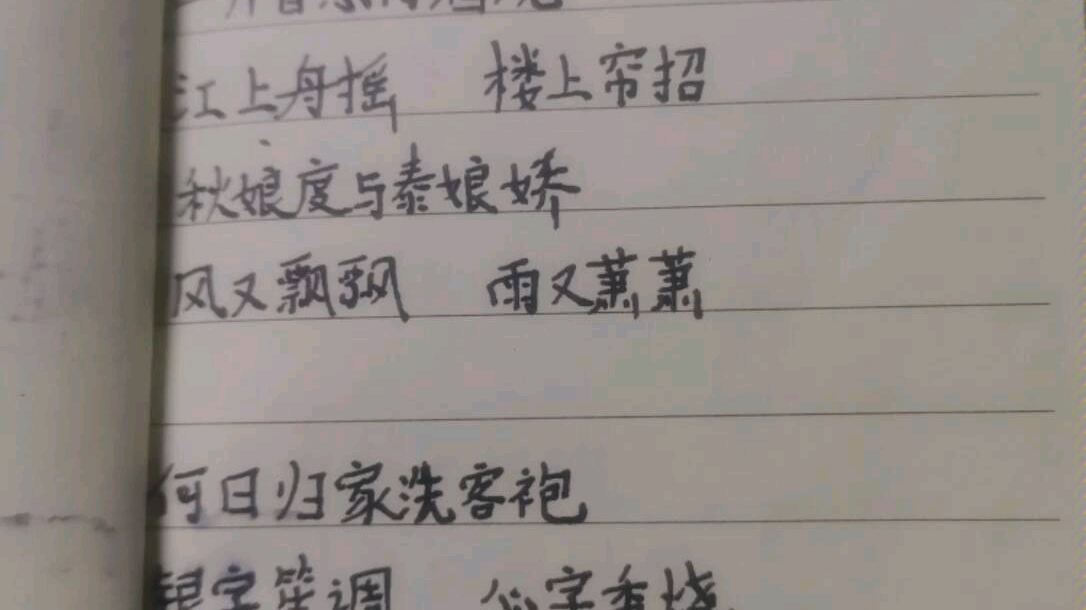 江上舟摇 楼上帘招
秋娘度与泰娘娇
风又飘飘 雨又萧萧
何日归家洗客袍
银字笙调 心字香烧